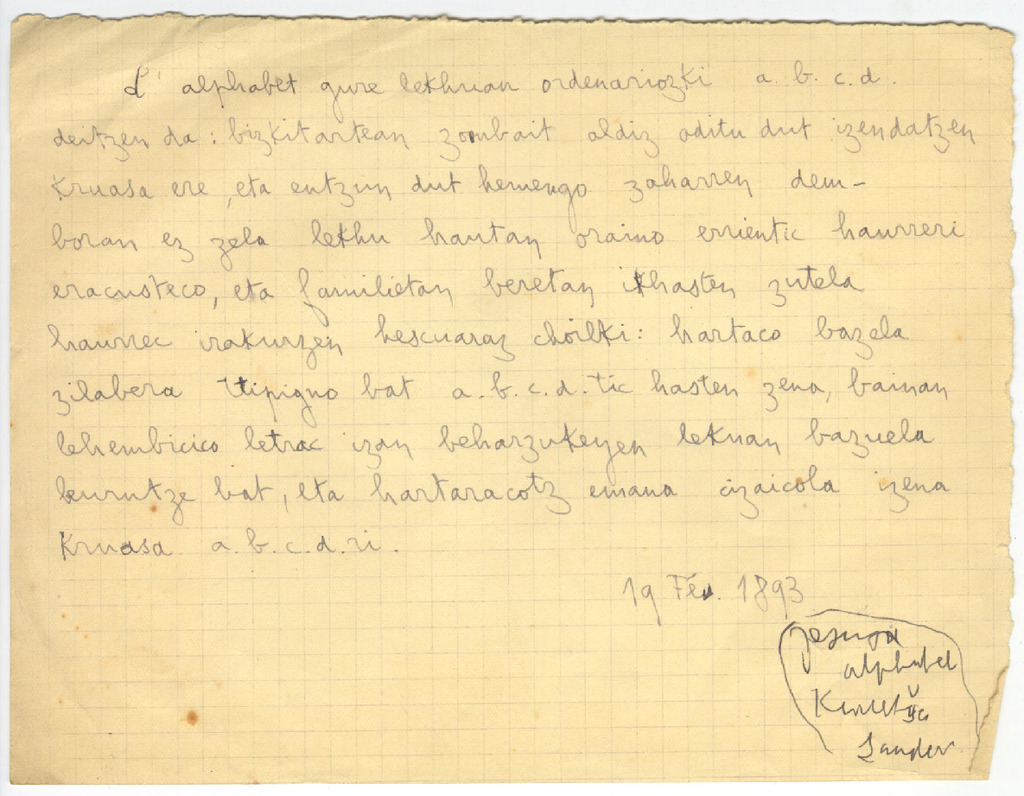 L' alphabet gure lekhuan ordenariozki a. b. c. d.
deitzen da : bizkitartean zombait aldiz aditu dut izendatzen
Kruasa ere, eta entzun dut hemengo zaharren dem-
boran ez zela lekhu hautan oraino errientic haurreri
eracusteco, eta familietan beretan ikhasten zutela
haurrec irakurzen hescuaraz choilki : hartaco bazela
zilabera ttipigno bat a. b. c. d. tic hasten zena, bainan
lehembicico letrac izan behar zukeyen lekuan bazuela
kurutze bat, eta hartaracotz emana cizaicola izena
Kruasa a. b. c. d. ri.
19 Fév. 1893
alphabet